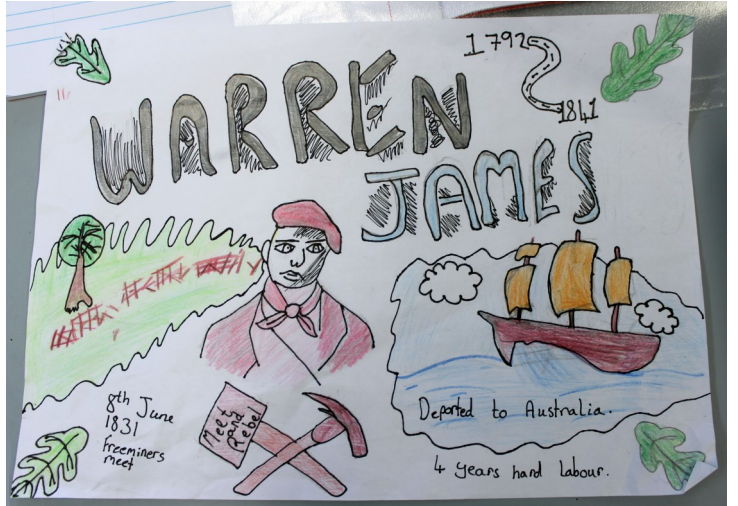 1792
1841
WARREN
JAMES
8th June
1831
freeminers
meet
Meet
and
Rebel
Deported to Australia.
4 years hard labour.